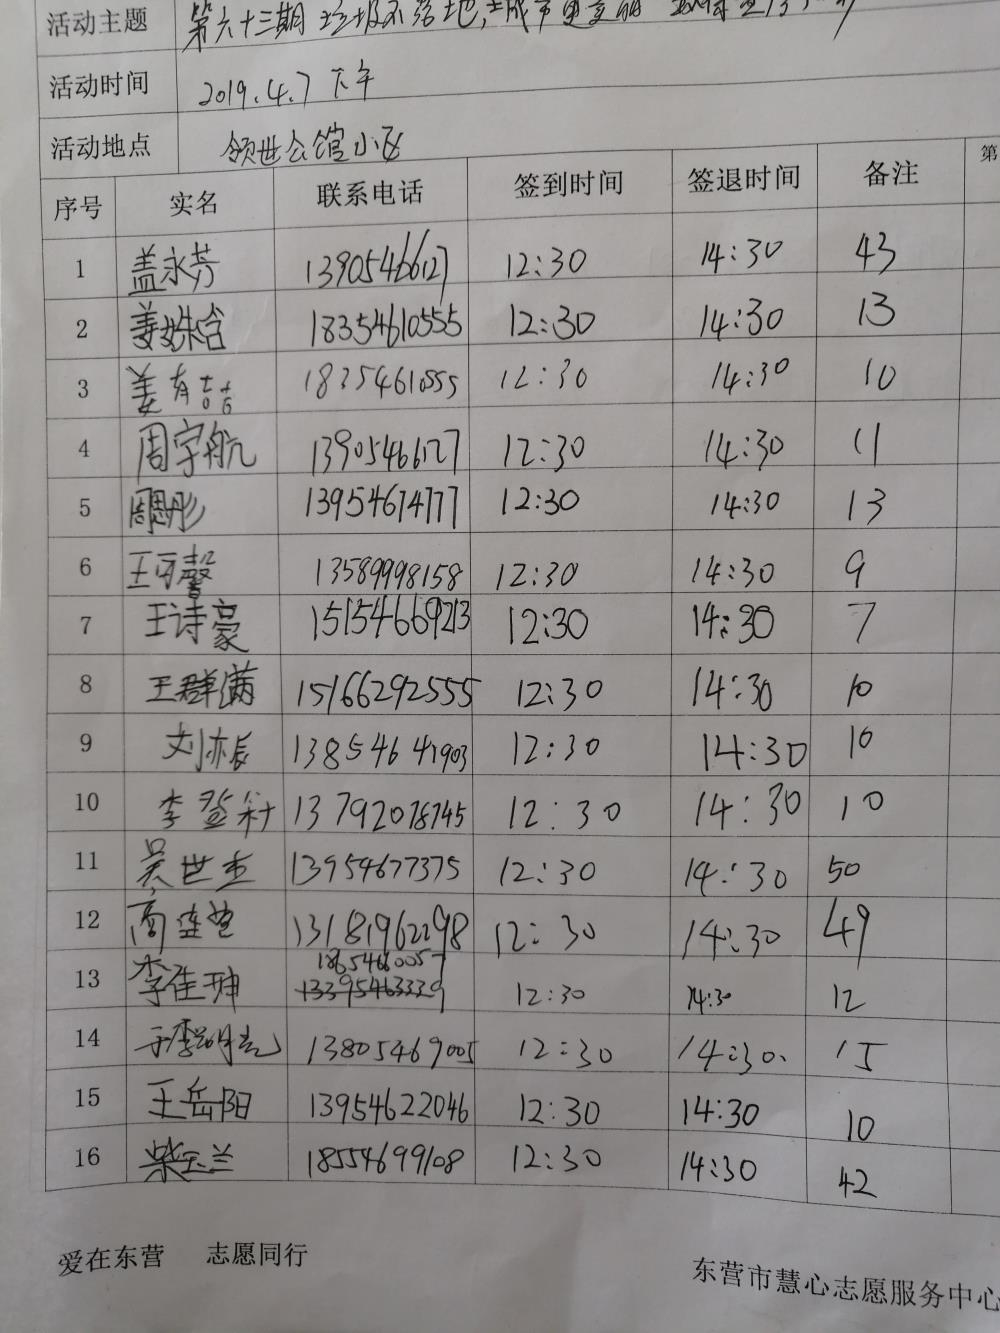 活动主题 第六十三期 垃圾不落地,城市更美丽
活动时间 2019.4.7 下午
活动地点 领世公馆小区
序号 实名 联系电话 签到时间 签退时间 备注 第
1 盖永芳 13905466127 12:30 14:30 43
2 姜姝含 18354610555 12:30 14:30 13
3 姜有喆 18354610555 12:30 14:30 10
4 周宇航 13905466127 12:30 14:30 11
5 周思彤 13954674777 12:30 14:30 13
6 王可馨 13589998158 12:30 14:30 9
7 王诗豪 12:30 14:30 7
8 王群满 15166292555 12:30 14:30 10
9 刘亦辰 13854647903 12:30 14:30 10
10 李 13792078745 12:30 14:30 10
11 吴世杰 13954677375 12:30 14:30 50
12 高连 13181962298 12:30 14:30 49
13 李佳珅 18654660057 12:30 14:30 12
14 13805469005 12:30 14:30 15
15 王岳阳 13954622046 12:30 14:30 10
16 柴玉兰 18554699108 12:30 14:30 42
爱在东营 志愿同行
东营市慧心志愿服务中心